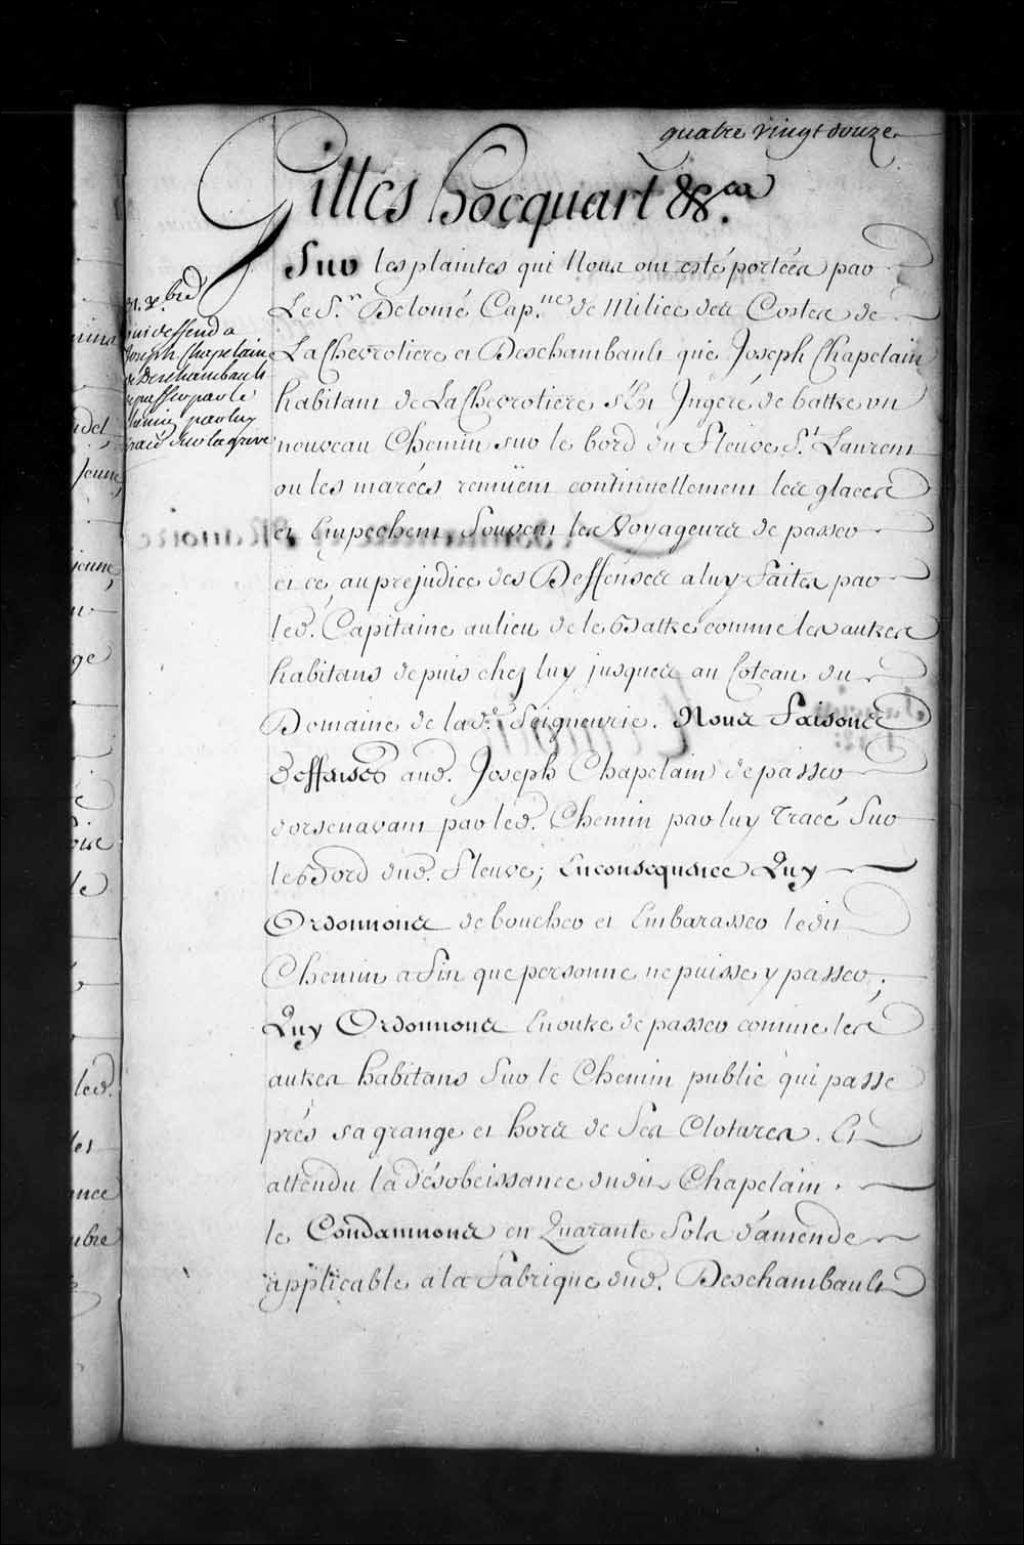 quatre vingt douze
Gilles hocquart &c.a
Sur les plaintes qui Nous ont esté portées par
Le S.r Delomé Cap.ne de Milice des Costes de
LaChevrotiere et Deschambault que Joseph Chapelain
habitant de LaChevrotiere s'Est Jngeré de battre un
nouveau Chemin sur le bord du Fleuve S.t Laurent
ou les marées remüent continuellement les glaces
et Empechent Souvent les Voyageurs de passer
et ce, au prejudice des Deffenses a luy faites par
led. Capitaine au lieu de le Battre comme les autres
habitans depuis chez luy jusques au Coteau du
Domaine de lad.e Seigneurie. Nous Faisons
Deffenses aud. Joseph Chapelain de passer
dorsenavant par led. Chemin par luy Tracé Sur
le Bord dud. Fleuve; Enconsequence Luy
Ordonnons de boucher et Embarasser ledit
Chemin afin que personne ne puisse y passer;
Luy Ordonnons Enoutre de passer comme les
autres habitans Sur le Chemin public qui passe
prés sa grange et hors de Ses Clotures. Et
attendu la désobeissance dudit Chapelain
le Condamnons en Quarante Sols d'amende
applicable a la Fabrique dud. Deschambault
31. X.bre
qui deffend a
Joseph Chapelain
de Deschambault
de passer par le
chemin par luy
tracé sur la greve